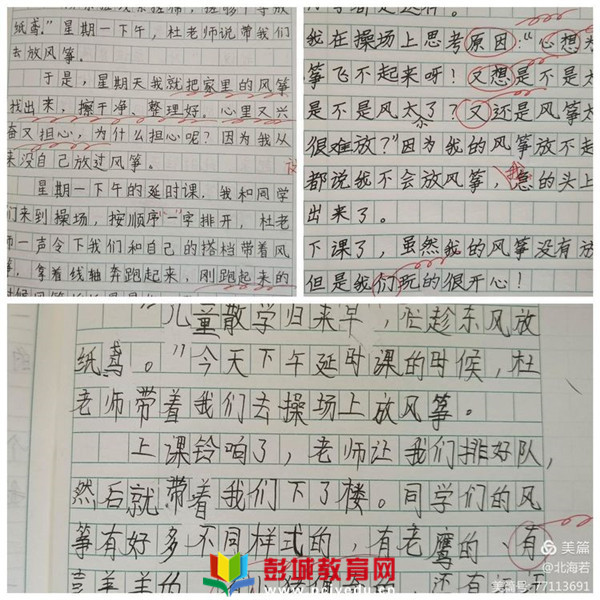 纸鸢。"星期一下午，杜老师说带我们
去放风筝。
于是，星期天我就把家里的风筝
找出来，擦干净、整理好。心里又兴
奋又担心，为什么担心呢？因为我从
来没自己放过风筝。
星期一下午的延时课，我和同学
们来到操场，按顺序一字排开，杜老
师一声令下我们和自己的搭档带着风
筝，拿着线轴奔跑起来，刚跑起来的
我在操场上思考原因："心想为
筝飞不起来呀！又想是不是太
是不是风太了？又还是风筝太
小
很难放？"因为我的风筝放不起
都说我不会放风筝，我急的头上
出来了。
下课了，虽然我的风筝没有放
但是我们玩的很开心！
"儿童散学归来早"，忙趁东风放
纸鸢。"今天下午延时课的时候，杜
老师带着我们去操场上放风筝。
上课铃响了，老师让我们排好队，
然后就带着我们下了楼。同学们的风
筝有好多不同样式的，有老鹰的、有
喜羊羊的
还有
彭城教育网
www.pcjyw.com
美篇
@北海若
美篇号:77113691